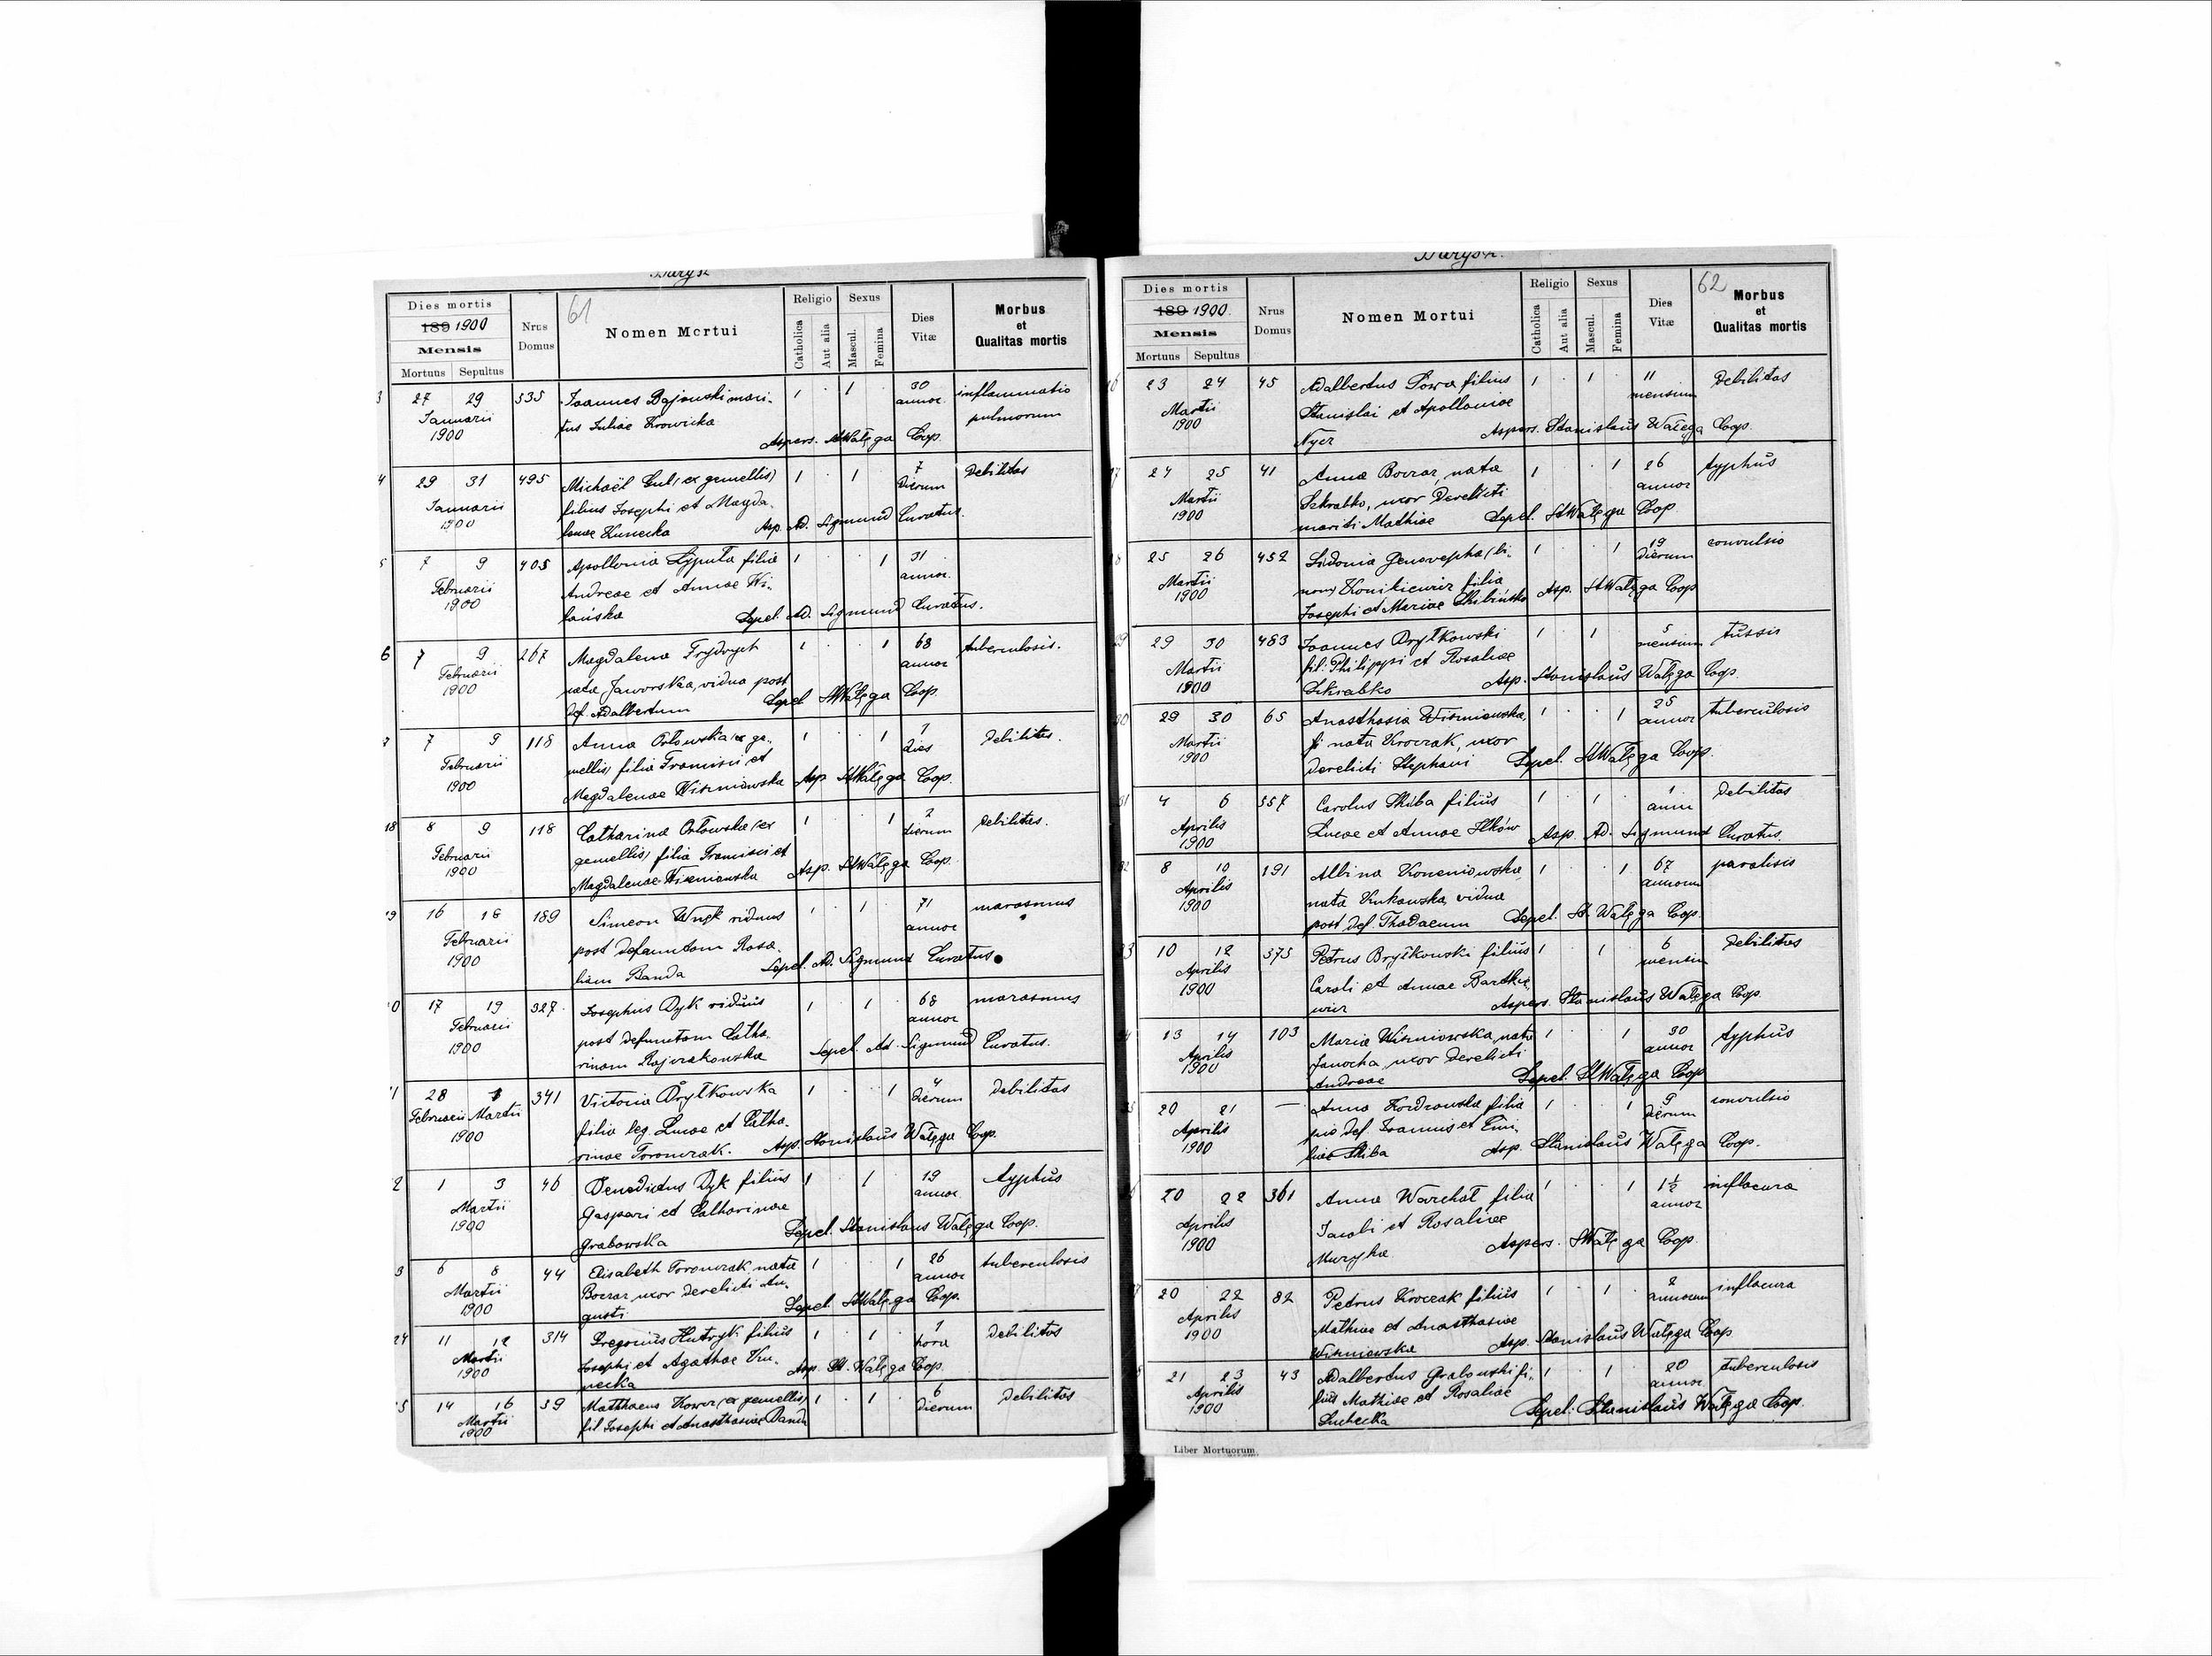 61
Dies mortis
189 1900
Mensis
Mortuus Sepultus
Nrus
Domus
Nomen Mortui
Religio
Catholica
Aut alia
Sexus
Mascul.
Femina
Dies
Vitæ
Morbus
et
Qualitas mortis
3 27 29 535 Joannes Bajowski mari- 1 1 30 inflammatio
Januarii annor. pulmonum
1900 tus Juliae Krowicka
Aspers. StWałęga Coop.
4 29 31 495 Michaël Gul (ex gemellis) 1 1 7 debilitas
Januarii filius Josephi et Magda- dierum
1900 lenae Kunecka Asp. Ad. Sigmund Curatus.
5 7 9 405 Apollonia Łyputa filia 1 1 31
Februarii Andreae et Annae Wi- annor.
1900 lańska Sepel. Ad. Sigmund Curatus.
6 7 9 267 Magdalena Frydrych 1 1 68 tuberculosis.
Februarii nata Jaworska, vidua post annor
1900 def. Adalbertum Sepel StWałęga Coop.
7 7 9 118 Anna Orłowska (ex ge- 1 1 1 debilitas.
Februarii mellis) filia Francisci et dies
1900 Magdalenae Wiśniowska Asp StWałęga Coop.
18 8 9 118 Catharina Orłowska (ex 1 1 2 debilitas.
Februarii gemellis) filia Francisci et dierum
1900 Magdalenae Wiśniowska Asp. StWałęga Coop.
19 16 18 189 Simeon Wnęk viduus 1 1 71 marasmus
Februarii post defunctam Rosa- annor
1900 liam Banda Sepel. Ad. Sigmund Curatus.
0 17 19 327 Josephus Dyk viduus 1 1 68 marasmus
Februarii post defunctam Catha- annor
1900 rinam Rajczakowska Sepel. Ad. Sigmund Curatus.
1 28 1 341 Victoria Bryłkowska 1 1 4 debilitas
Februarii Martii filia leg. Lucae et Catha- dierum
1900 rinae Toronczak. Asp. Stanislaus Wałęga Coop.
2 1 3 46 Benedictus Dyk filius 1 1 19 typhus
Martii Gaspari et Catharinae annor.
1900 Grabowska Sepel. Stanislaus Wałęga Coop.
3 6 8 44 Elisabeth Toronczak nata 1 1 26 tuberculosis
Martii Boczar uxor derelicti Au- annor
1900 gusti Sepel. StWałęga Coop.
24 11 12 314 Gregorius Hutryk filius 1 1 1 debilitas
Martii Josephi et Agathae Ku- hora
1900 necka Asp. St. Wałęga Coop.
5 14 16 39 Matthaeus Kowcz (ex gemellis) 1 1 6 debilitas
Martii fil Josephi et Anasthasiae Banda dierum
1900
62
Dies mortis
189 1900.
Mensis
Mortuus Sepultus
Nrus
Domus
Nomen Mortui
Religio
Catholica
Aut alia
Sexus
Mascul.
Femina
Dies
Vitæ
Morbus
et
Qualitas mortis
6 23 24 45 Adalbertus Sowa filius 1 1 11 debilitas
Martii Stanislai et Apolloniae mensium
1900 Nycz Aspers. Stanislaus Wałęga Coop.
7 24 25 41 Anna Boczar, nata 1 1 26 typhus
Martii Szkrabko, uxor derelicti annor
1900 mariti Mathiae Sepel. StWałęga Coop
8 25 26 452 Sidonia Genovepha (bi- 1 1 19 convulsio
Martii nom) Konikiewicz filia dierum
1900 Josephi et Mariae Skibińska Asp. StWałęga Coop
29 29 30 483 Joannes Bryłkowski 1 1 5 tussis
Martii fil: Philippi et Rosaliae mensium
1900 Szkrabko Asp. Stanislaus Wałęga Coop.
30 29 30 65 Anasthasia Wiśniowska, 1 1 25 tuberculosis
Martii nata Kroczak, uxor annor
1900 derelicti Stephani Sepel. StWałęga Coop.
31 4 6 357 Carolus Skiba filius 1 1 1 debilitas
Aprilis Lucae et Annae Ilków anni
1900 Asp. Ad. Sigmund Curatus.
32 8 10 191 Albina Koneniowska, 1 1 67 paralisis
Aprilis nata Kukowska, vidua annorum
1900 post def. Thadaeum Sepel. St. Wałęga Coop.
33 10 12 373 Petrus Bryłkowski filius 1 1 6 debilitas
Aprilis Caroli et Annae Bartkie- mensium
1900 wicz Aspers. Stanislaus Wałęga Coop.
34 13 14 103 Maria Wiśniowska, nata 1 1 30 typhus
Aprilis Janocha, uxor derelicti annor
1900 Andreae Sepel. StWałęga Coop
35 20 21 — Anna Kordzowska filia 1 1 9 convulsio
Aprilis def. Joannis et Emi- dierum
1900 liae Skiba Asp. Stanislaus Wałęga Coop.
20 22 361 Anna Warchał filia 1 1 1½ influenza
Aprilis Jacobi et Rosaliae annor
1900 Muryka Aspers. StWałęga Coop.
20 22 82 Petrus Kroczak filius 1 1 2 influenza
Aprilis Mathiae et Anasthasiae annorum
1900 Wiśniowska Asp. Stanislaus Wałęga Coop
21 23 43 Adalbertus Grabowski fi- 1 1 20 tuberculosis
Aprilis lius Mathiae et Rosaliae annor
1900 Suchecka Sepel. Stanislaus Wałęga Coop.
Liber Mortuorum